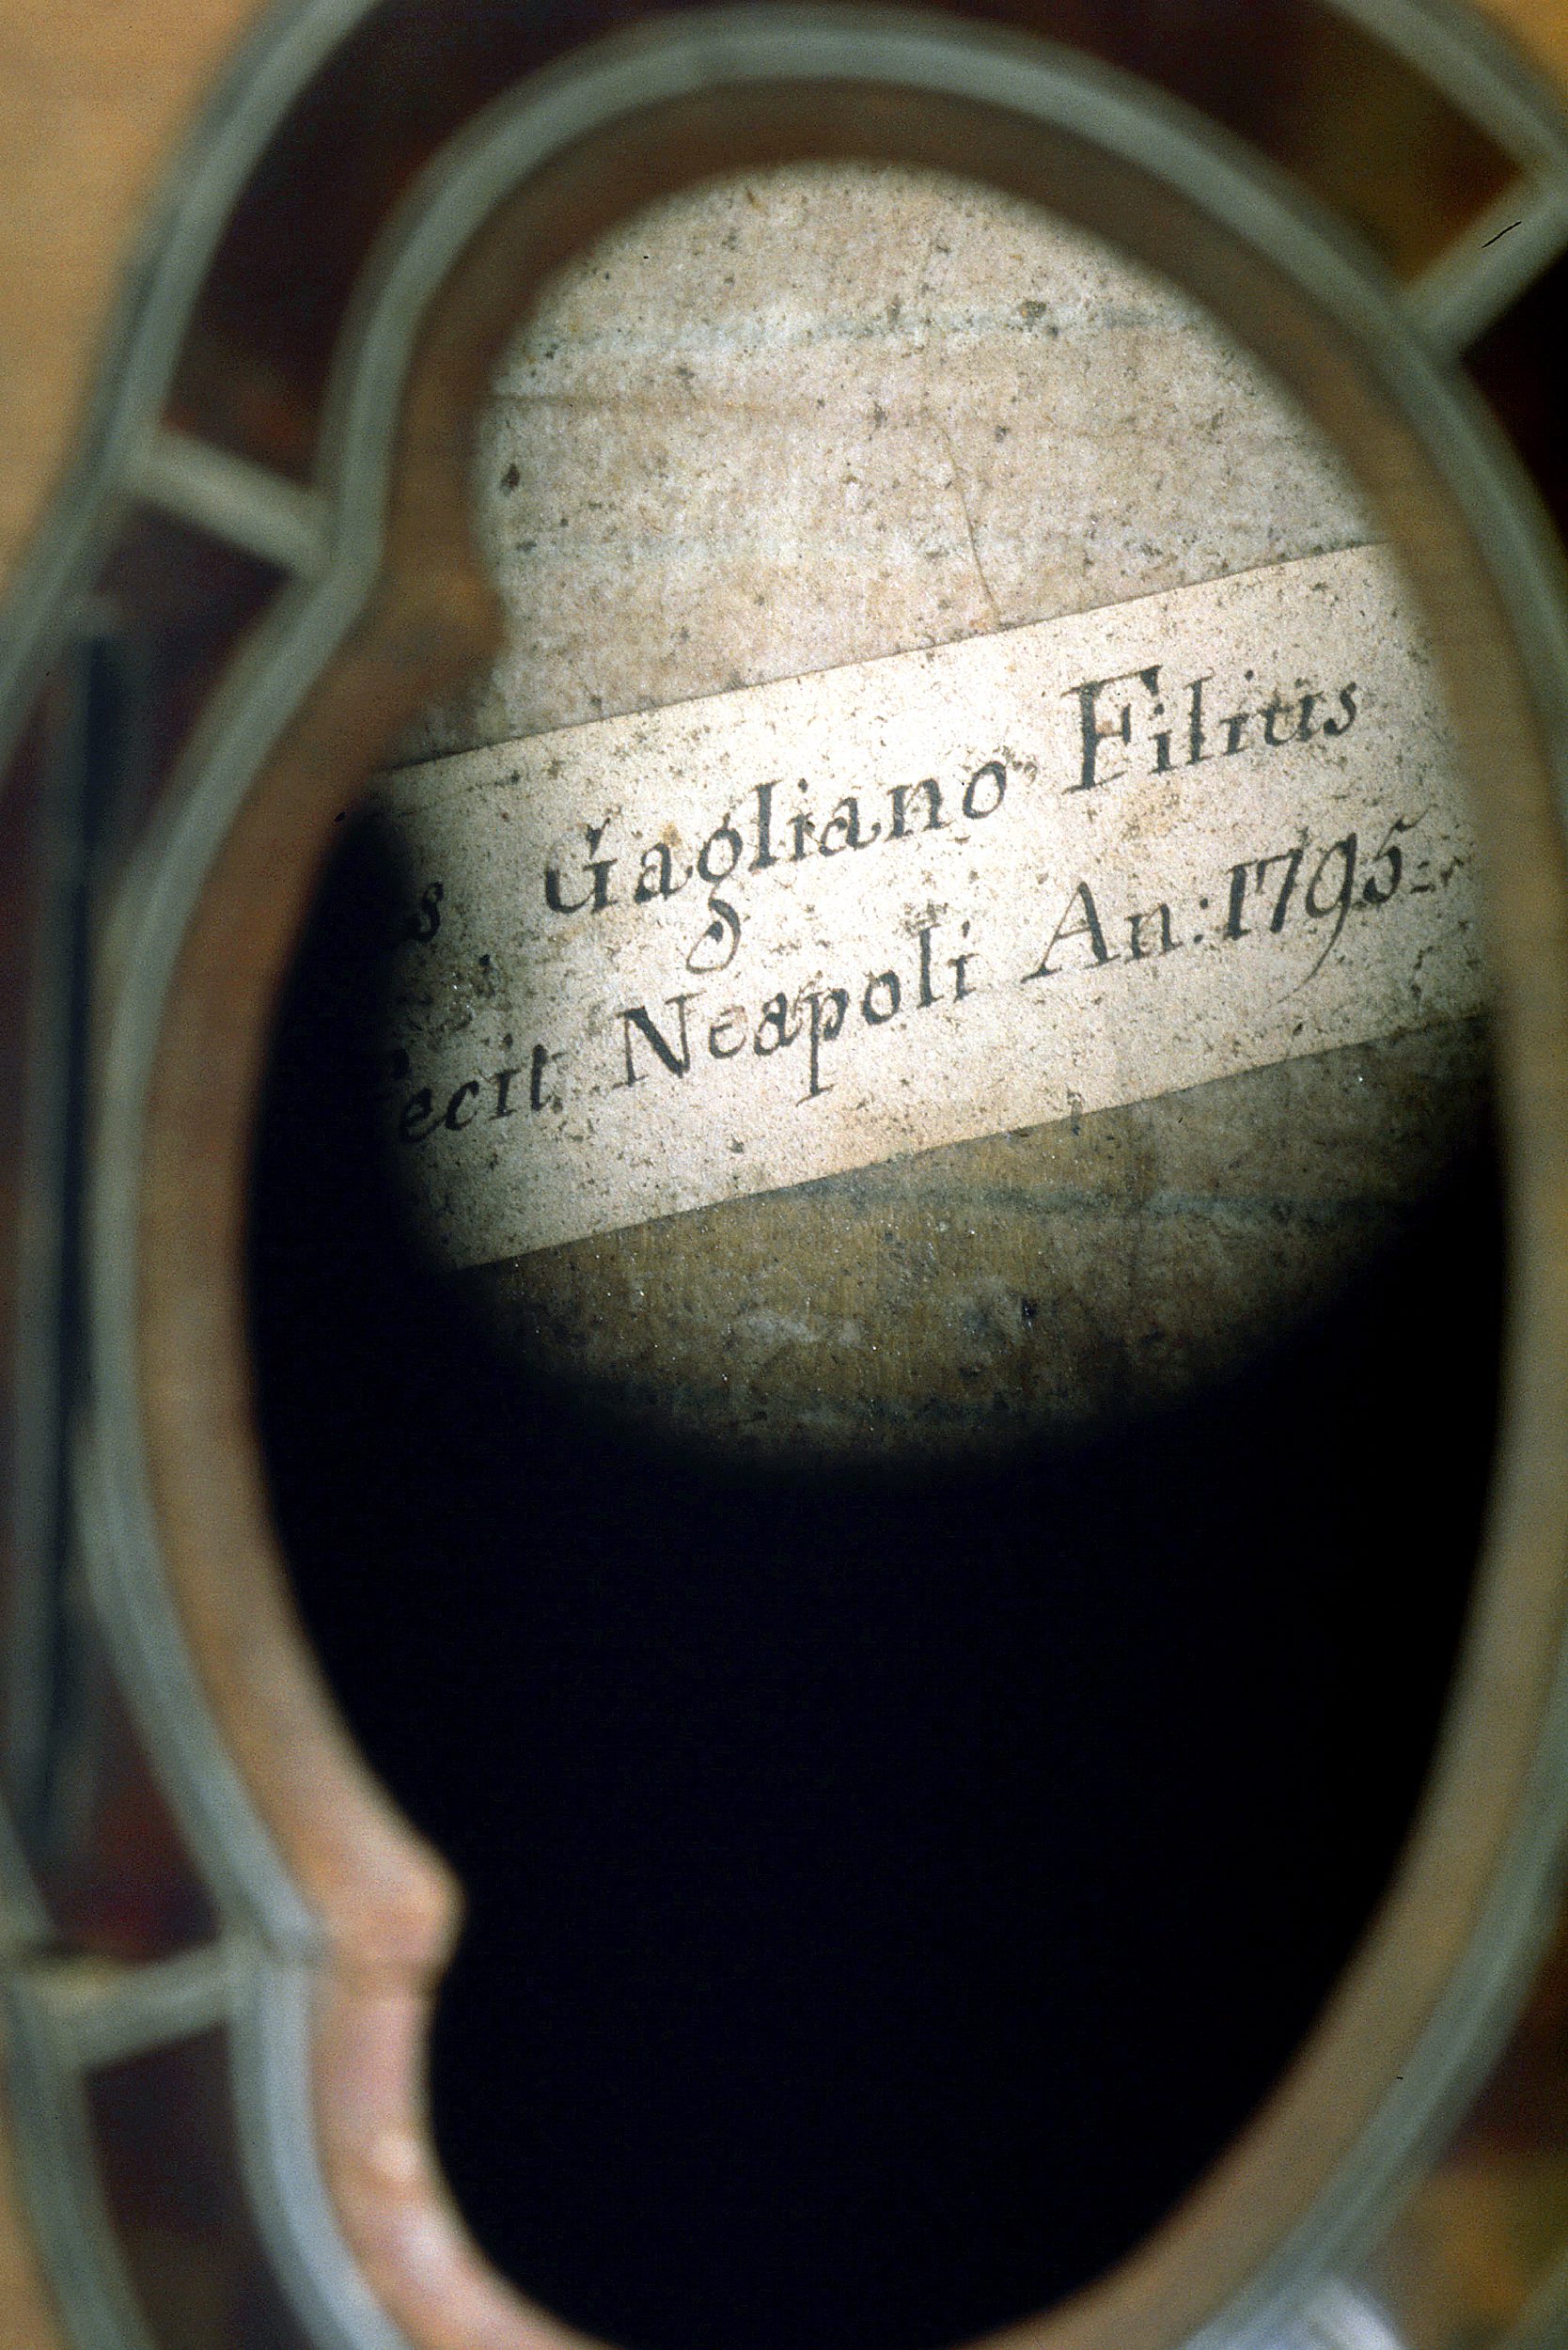 s Gagliano Filius
fecit Neapoli An: 1795